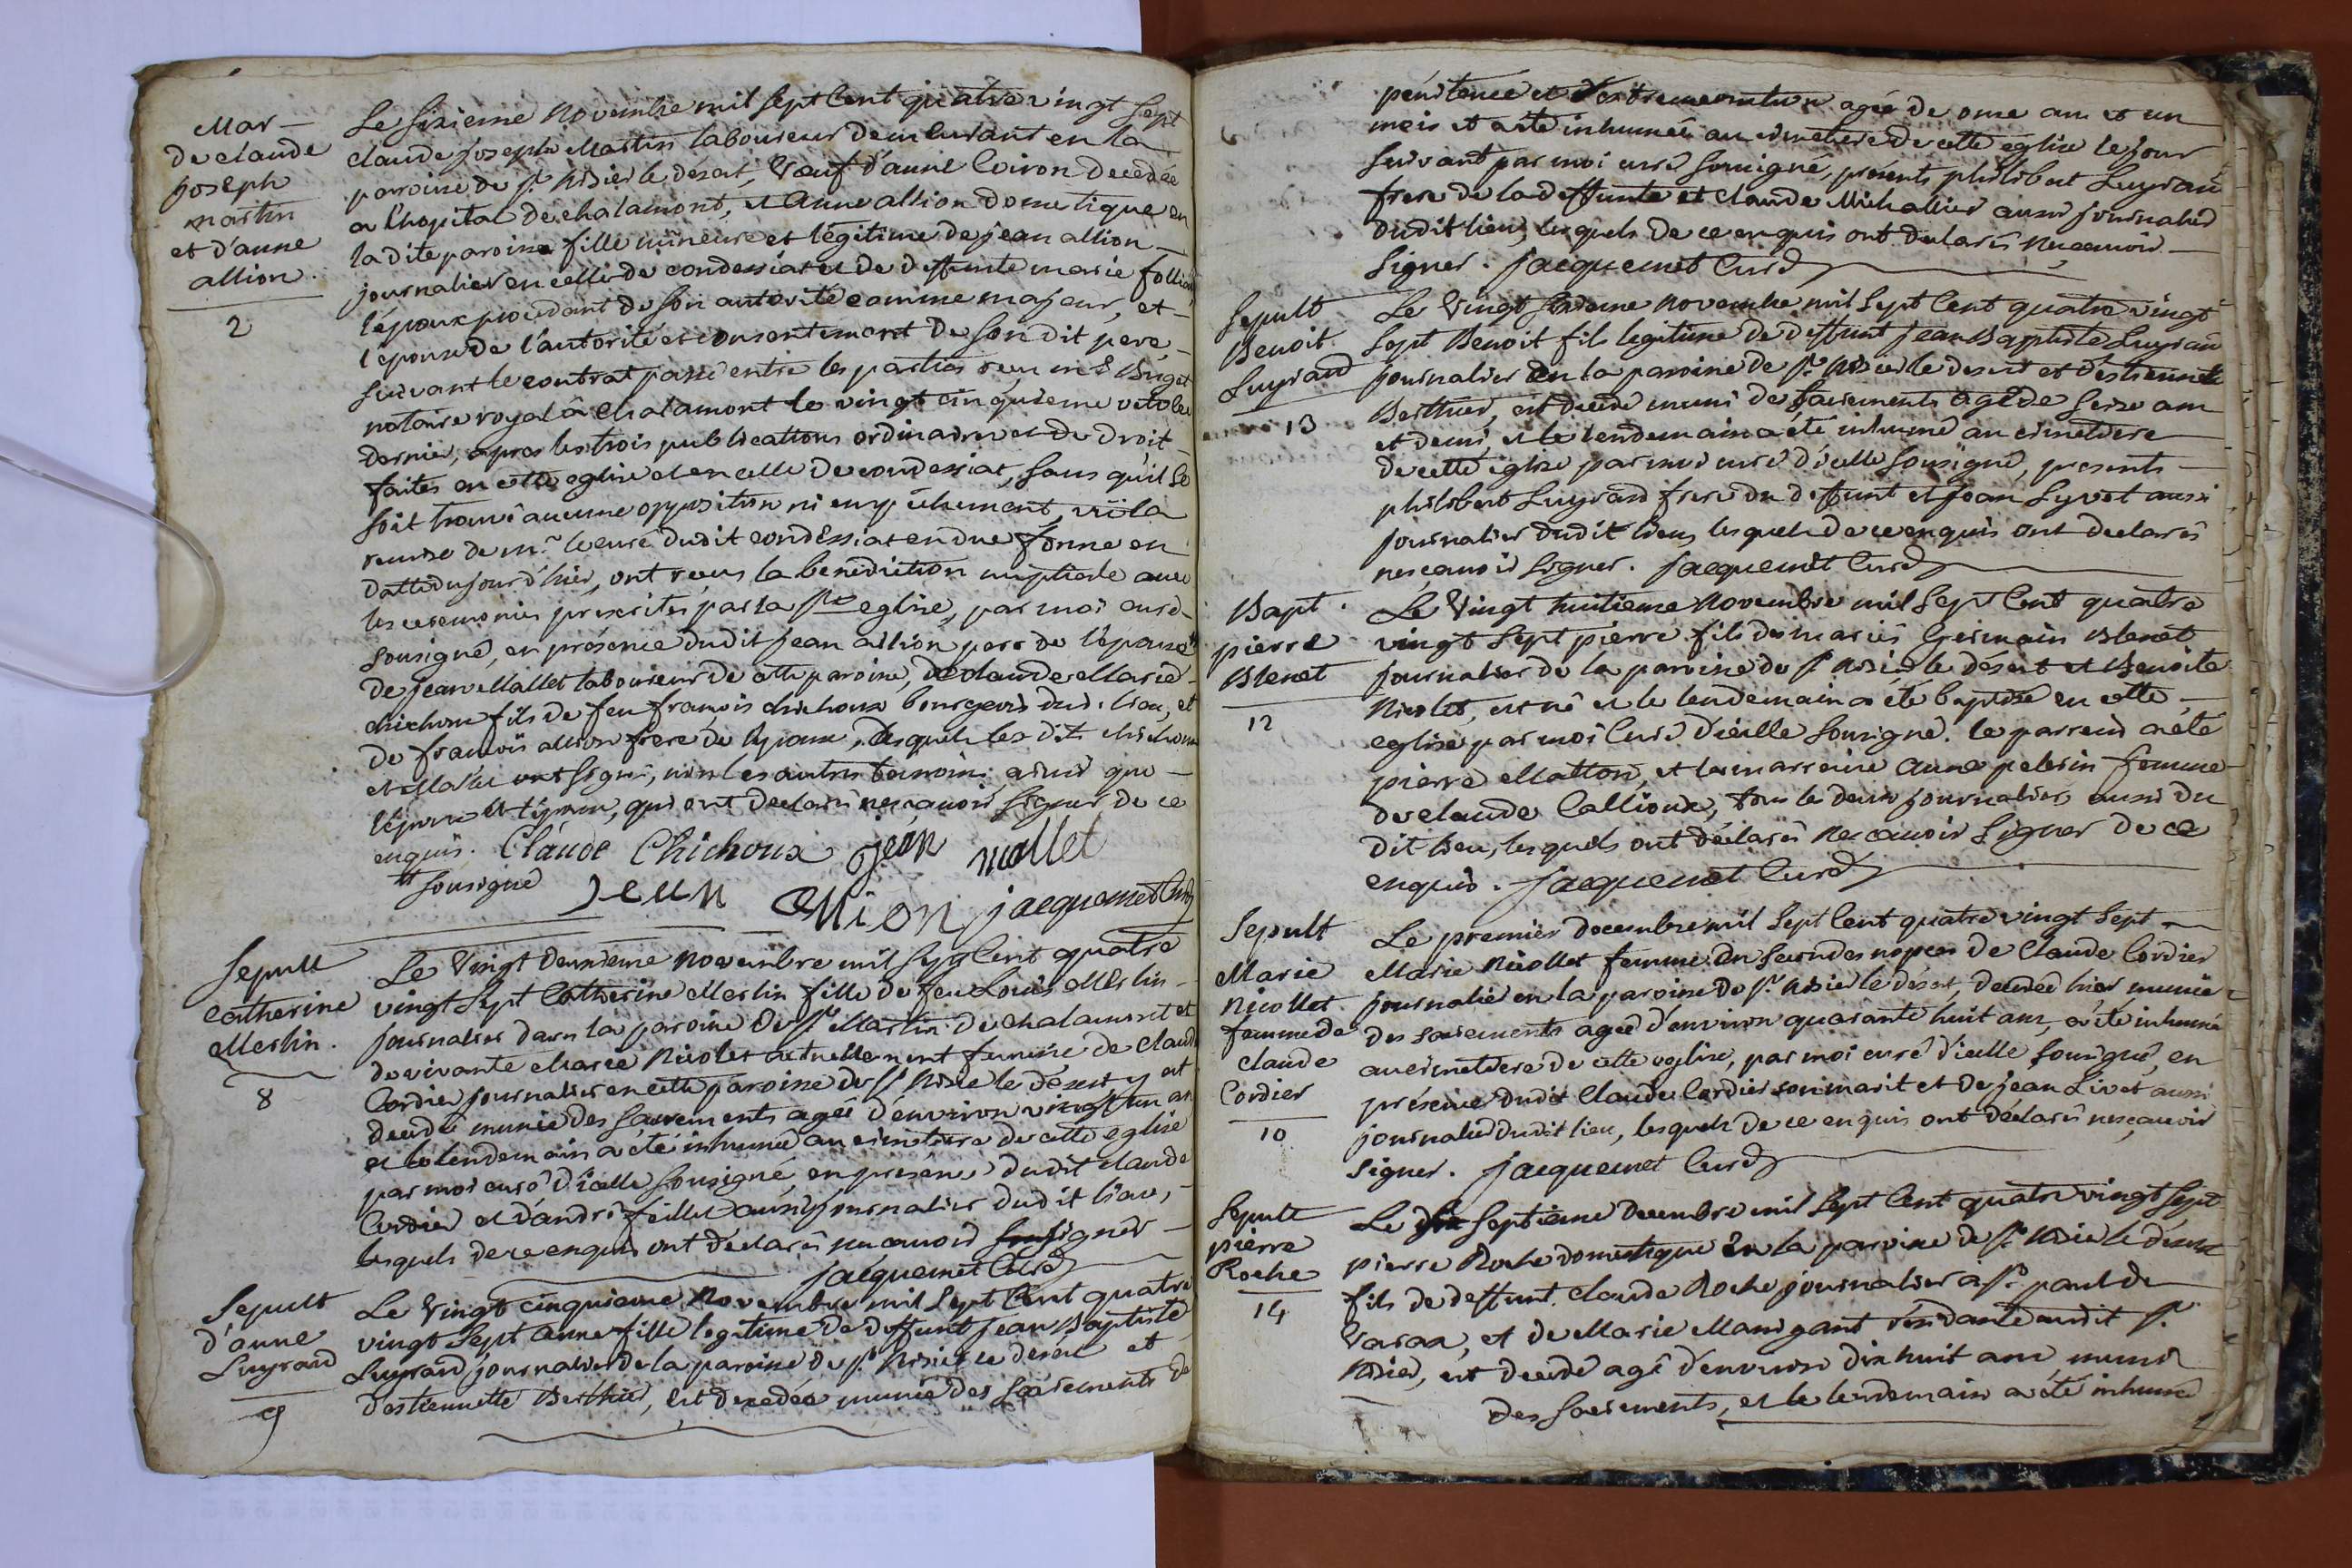 Mar —
de claude
joseph
martin
et d'anne
allion.
2
Le sixieme novembre mil sept cent quatre vingt sept
claude joseph Martin laboureur demeurant en la
paroisse de st nisier le désert, veuf d'anne Coiron decedée
a l'hopital de chalamont, et anne allion domestique en
la dite paroisse fille mineure et légitime de jean allion —
journalier en celle de condessiat et de deffunte marie follion,
l'époux procedant de son autorité comme majeur, et —
l'épouse de l'autorité et consentement de son dit pere —
suivant le contrat passé entre les parties reçu me Buget
notaire royal à Chalamont le vingt cinquieme octobre
dernier, apres les trois publications ordinaires et de droit
faites en cette eglise et en celle de condessiat, sans qu'il se
soit trouvé aucune opposition ni empêchement, vü la
remise de mr le curé dudit condessiat en due forme en
datte du jour d'hier, ont reçus la benediction nuptiale avec
les ceremonies prescrites par la ste eglise, par moi curé —
sousigné, en présence dudit jean allion pere de l'épouse
de jean Mallet laboureur de cette paroisse, de claude Marie —
chichoux fils de feu françois chichoux bourgeois dud. lieu, et
de françois allion frere de l'épouse, desquels les dits chichoux
et Mallet ont signé, non les autres temoins ainsi que —
l'époux et l'épouse, qui ont declarés nesçavoir signer de ce
enquis. Claude Chichoux jean mallet
sousigné jean allion jacquemet Curé
Sepult
catherine
Merlin.
8
Le vingt deuxieme novembre mil sept cent quatre
vingt sept Catherine Merlin fille de feu Louis Merlin —
journalier dans la paroisse de st Martin de chalamont et
de vivante Marie Nicolet actuellement femme de claude
Cordier journalier en cette paroisse de st nisier le désert y est
decedée munie des sacrements agée d'environ vingt un an
et le lendemain a été inhumé au cimetiere de cette eglise
par moi curé d'icelle sousigné, en présence dudit claude
Cordier et d'andré feillet aussi journalier dudit lieu, —
lesquels de ce enquis ont déclarés nescavoir signer —
jacquemet Curé
Sepult
d'anne
Luyrard
9
Le vingt cinquieme Novembre mil sept Cent quatre
vingt sept anne fille legitime de deffunt jean Baptiste
Luyrard journalier de la paroisse de st nisier le desert et
d'estiennette Berthier, est decedée munie des sacrements de
penitence et d'extremeonction agée de onze ans et un
mois et a été inhumée au cimetiere de cette eglise le jour
suivant par moi curé sousigné, présents philibert Luyrard
frere de la deffunte et Claude Michallier aussi journalier
dudit lieu, lesquels de ce enquis ont declarés nescavoir —
signer. jacquemet Curé
Sepult
Benoit
Luyrard
13
Le Vingt sixieme Novembre mil sept Cent quatre vingt
sept Benoit fils legitime de deffunt jean Baptiste Luyrard
journalier en la paroisse de st nisier le desert et d'estiennette
Berthier, est decedé muni des sacrements agé de seize ans
et demi, et le lendemain a été inhumé au cimetiere —
de cette église par moi curé d'icelle sousigné, presents —
philibert Luyrard frere du deffunt et jean Lyvet aussi
journalier dudit lieu, lesquels de ce enquis ont declarés
nesçavoir signer. jacquemet Curé
Bapt.
pierre
Blenet
12
Le Vingt huitieme Novembre mil sept Cent quatre
vingt sept pierre fils des mariés Germain Blenet
journalier de la paroisse de st nisier le désert et Benoite
Nicolet, est né et le lendemain a été baptisé en cette —
eglise par moi Curé d'icelle sousigné. le parrein a été
pierre Matton, et la marreine anne pelerin femme
de claude Callioux, tous les deux journaliers aussi du
dit lieu, lesquels ont déclarés nescavoir signer de ce
enquis. jacquemet Curé
Sepult
Marie
Nicollet
femme de
claude
Cordier
10
Le premier decembre mil sept Cent quatre vingt sept —
Marie Nicollet femme en secondes nopces de Claude Cordier
journalier en la paroisse de st nisier le désert, decedée hier munie
des sacrements agée d'environ quarante huit ans, a été inhumée
au cimetiere de cette eglise, par moi curé d'icelle sousigné, en
présence dudit Claude Cordier son marit et de jean Livet aussi
journalier dudit lieu, lesquels de ce enquis ont déclarés nesçavoir
signer. jacquemet Curé
Sepult
pierre
Roche
14
Le septieme decembre mil sept Cent quatre vingt sept
pierre Roche domestique en la paroisse de st nisier le désert
fils de deffunt Claude Roche journalier à st paul de
varax, et de Marie Manigant résidante audit st
nisier, est decedé agé d'environ dix huit ans muni
des sacrements, et le lendemain a été inhumé